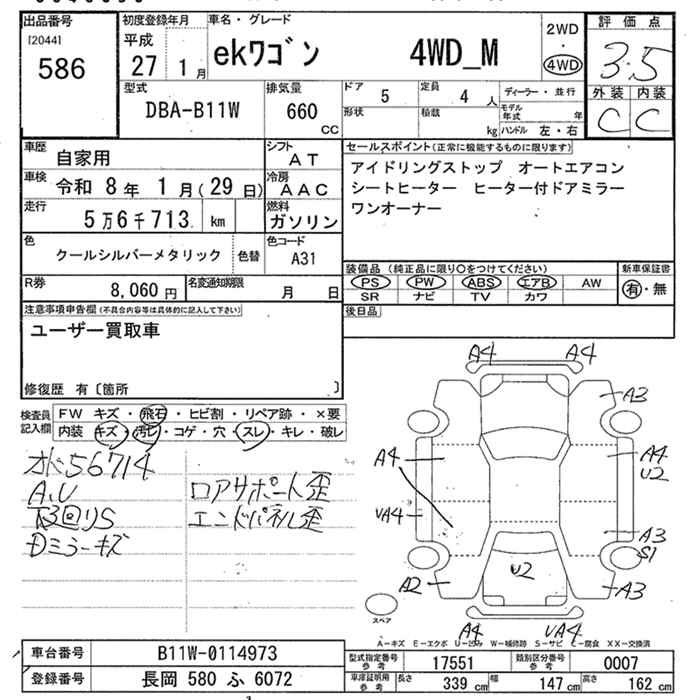 出品番号 初度登録年月 車名・グレード 評価点
[2044] 586 平成 27 1月 ekワゴン 4WD_M 2WD・4WD 3.5
外装 内装
C C
型式 排気量 ドア 5 定員 4人 ディーラー・並行
DBA-B11W 660 cc 形状 積載 kg モデル年式 年
ハンドル 左・右
車歴 自家用 シフト AT セールスポイント(正常に機能するものに限ります)
車検 令和 8年 1月(29日) 冷房 AAC アイドリングストップ オートエアコン
シートヒーター ヒーター付ドアミラー
走行 5万6千713 km 燃料 ガソリン ワンオーナー
色 クールシルバーメタリック 色替 色コード A31
装備品(純正品に限り○をつけてください) 新車保証書
PS PW ABS エアB AW 有・無
SR ナビ TV カワ
R券 8,060円 名変通知期限 月 日
後日品
注意事項申告欄(不具合内容等は具体的に記入して下さい)
ユーザー買取車
修復歴 有〔箇所 〕
検査員記入欄 FW キズ・飛石・ヒビ割・リペア跡・×要
内装 キズ・汚レ・コゲ・穴・スレ・キレ・破レ
56714
A.U ロアサポート歪
下回りS エンドパネル歪
Dミラーキズ
A4 A4
A3
A4 A4
U2
UA4
A3
S1
A2 U2 A3
A4 UA4
スペア
A-キズ E-エクボ U-凹み W-補修跡 S-サビ C-腐食 XX-交換済
車台番号 B11W-0114973
登録番号 長岡 580 ふ 6072
型式指定番号参考 17551 類別区分番号参考 0007
車庫証明用参考 長さ 339cm 幅 147cm 高さ 162cm